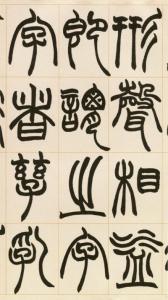 形聲相益
即謂之字
字者孳乳